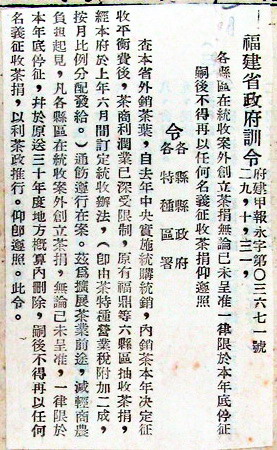 福建省政府訓令
府建甲報永字第〇三六七一號
二九，十，三一，
各縣區在統收案外創立茶捐無論已未呈准一律限於本年底停征
嗣後不得再以任何名義征收茶捐仰遵照
令各縣縣政府
各特種區署
查本省外銷茶葉，自去年中央實施統購統銷，內銷茶本年決定征
收平衡費後，茶商利潤業已深受限制，原有福鼎等六縣區抽收茶捐，
經本府於上年六月間訂定統收辦法，（卽由茶特種營業稅附加二成，
按月比例分配發給。）通飭遵行在案。茲爲擴展茶業前途，減輕商農
負担起見，凡各縣區在統收案外創立茶捐，無論已未呈准，一律限於
本年底停征，幷於原送三十年度地方概算內刪除，嗣後不得再以任何
名義征收茶捐，以利茶政推行。仰卽遵照。此令。